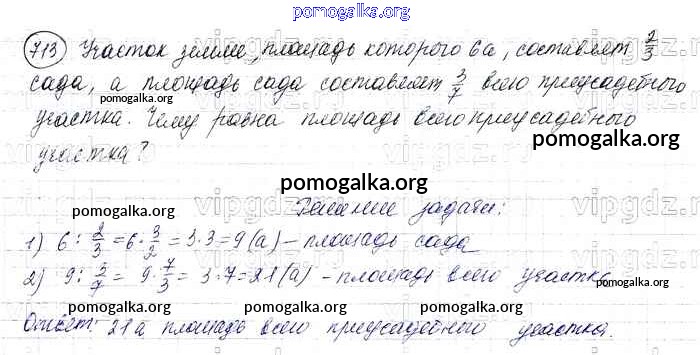 pomogalka.org
713 Участок земли, площадь которого 6а, составляет 2/3
сада, а площадь сада составляет 3/7 всего приусадебного
pomogalka.org
участка. Чему равна площадь всего приусадебного
pomogalka.org
участка?
pomogalka.org
vipgdz.ru
Решение задачи:
pomogalka.org
1) 6 : 2/3 = 6 · 3/2 = 3 · 3 = 9 (а) – площадь сада
pomogalka.org
2) 9 : 3/7 = 9 · 7/3 = 3 · 7 = 21 (а) – площадь всего участка
pomogalka.org
pomogalka.org
Ответ: 21а площадь всего приусадебного участка.
pomogalka.org